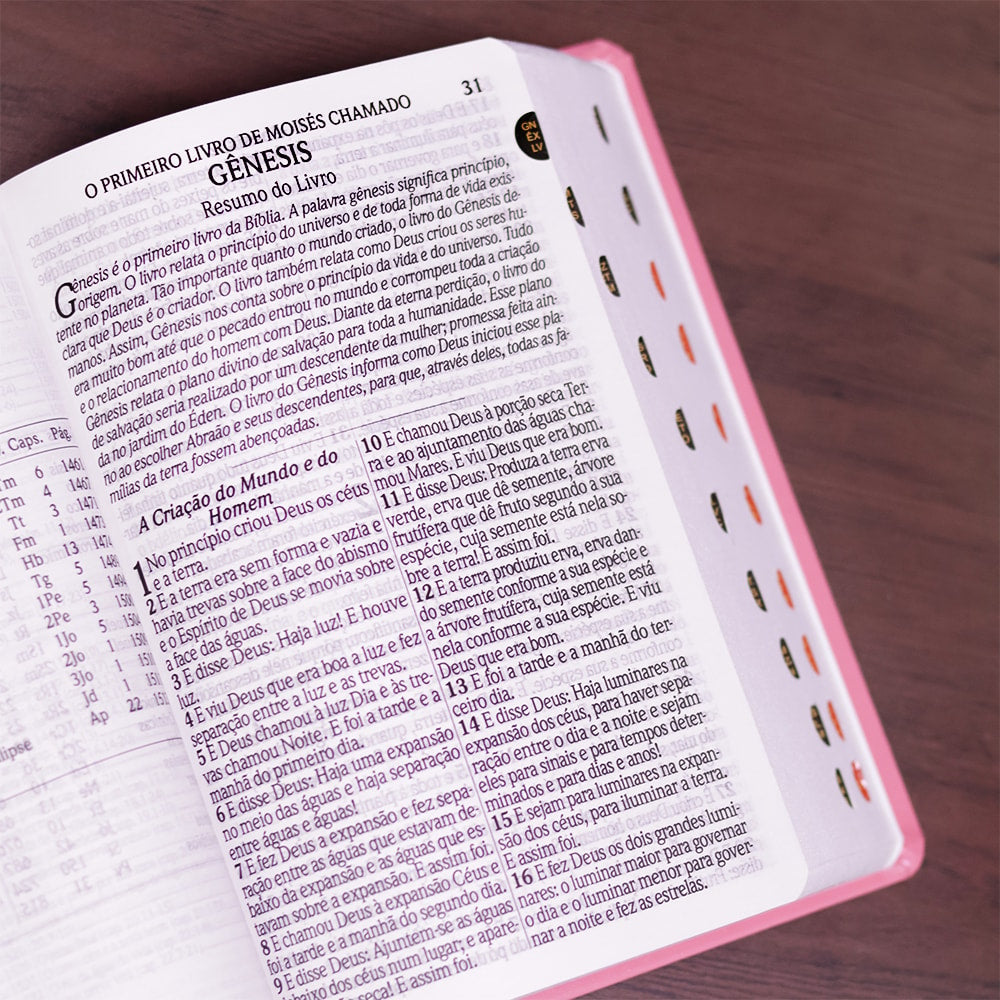 31
O PRIMEIRO LIVRO DE MOISÉS CHAMADO
GÊNESIS
Resumo do Livro
Gênesis é o primeiro livro da Bíblia. A palavra gênesis significa princípio,
origem. O livro relata o princípio do universo e de toda forma de vida exis-
tente no planeta. Tão importante quanto o mundo criado, o livro do Gênesis de-
clara que Deus é o criador. O livro também relata como Deus criou os seres hu-
manos. Assim, Gênesis nos conta sobre o princípio da vida e do universo. Tudo
era muito bom até que o pecado entrou no mundo e corrompeu toda a criação
e o relacionamento do homem com Deus. Diante da eterna perdição, o livro do
Gênesis relata o plano divino de salvação para toda a humanidade. Esse plano
de salvação seria realizado por um descendente da mulher; promessa feita ain-
da no jardim do Éden. O livro do Gênesis informa como Deus iniciou esse pla-
no ao escolher Abraão e seus descendentes, para que, através deles, todas as fa-
mílias da terra fossem abençoadas.
A Criação do Mundo e do
Homem
1 No princípio criou Deus os céus
e a terra.
2 E a terra era sem forma e vazia e
havia trevas sobre a face do abismo
e o Espírito de Deus se movia sobre
a face das águas.
3 E disse Deus: Haja luz! E houve
luz.
4 E viu Deus que era boa a luz e fez
separação entre a luz e as trevas.
5 E Deus chamou à luz Dia e às tre-
vas chamou Noite. E foi a tarde e a
manhã do primeiro dia.
6 E disse Deus: Haja uma expansão
no meio das águas e haja separação
entre águas e águas!
7 E fez Deus a expansão e fez sepa-
ração entre as águas que estavam de-
baixo da expansão e as águas que es-
tavam sobre a expansão. E assim foi.
8 E chamou Deus à expansão Céus e
foi a tarde e a manhã do segundo dia.
9 E disse Deus: Ajuntem-se as águas
debaixo dos céus num lugar; e apare-
seca! E assim foi.
10 E chamou Deus à porção seca Ter-
ra e ao ajuntamento das águas cha-
mou Mares. E viu Deus que era bom.
11 E disse Deus: Produza a terra erva
verde, erva que dê semente, árvore
frutífera que dê fruto segundo a sua
espécie, cuja semente está nela so-
bre a terra! E assim foi.
12 E a terra produziu erva, erva dan-
do semente conforme a sua espécie e
a árvore frutífera, cuja semente está
nela conforme a sua espécie. E viu
Deus que era bom.
13 E foi a tarde e a manhã do ter-
ceiro dia.
14 E disse Deus: Haja luminares na
expansão dos céus, para haver sepa-
ração entre o dia e a noite e sejam
eles para sinais e para tempos deter-
minados e para dias e anos!
15 E sejam para luminares na expan-
são dos céus, para iluminar a terra.
E assim foi.
16 E fez Deus os dois grandes lumi-
nares: o luminar maior para governar
o dia e o luminar menor para gover-
nar a noite e fez as estrelas.
GN
ÊX
LV
Caps. Pág.
Tm 6
Tm 4
Tt 3
Fm 1
Hb 13
Tg 5
1Pe 5
2Pe 3
1Jo 5
2Jo 1
3Jo 1
Jd 1
Ap 22